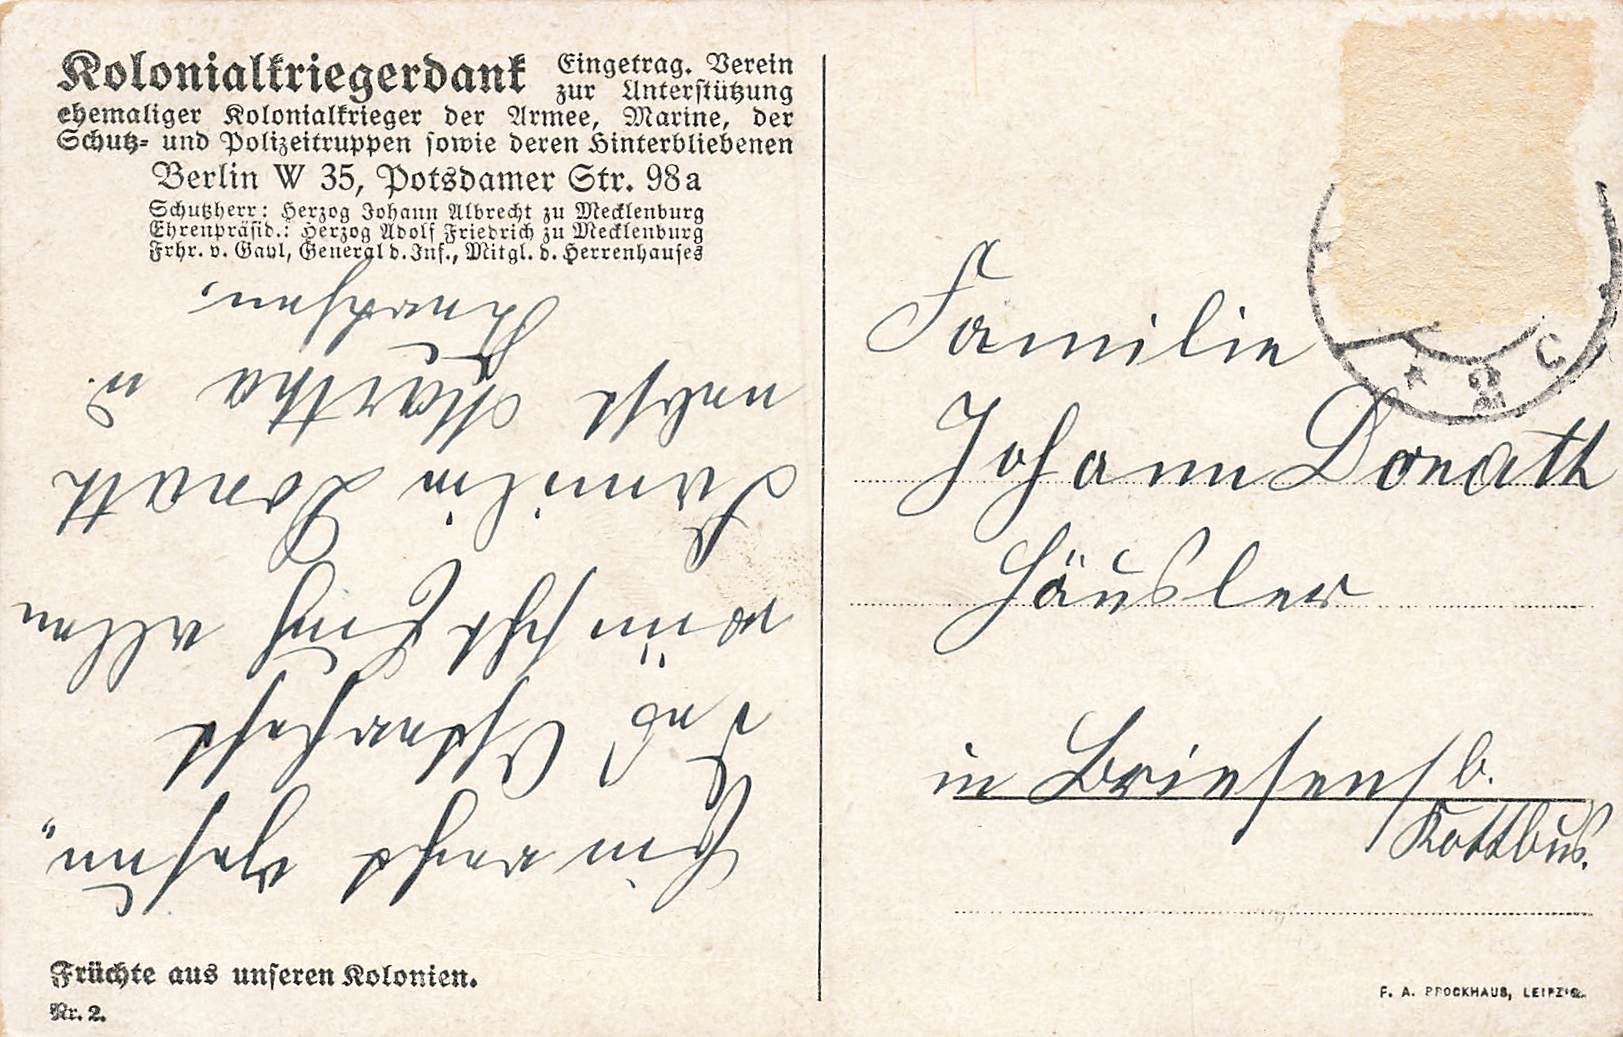 Kolonialkriegerdank Eingetrag. Verein
zur Unterstützung
ehemaliger Kolonialkrieger der Armee, Marine, der
Schutz- und Polizeitruppen sowie deren Hinterbliebenen
Berlin W 35, Potsdamer Str. 98a
Schutzherr: Herzog Johann Albrecht zu Mecklenburg
Ehrenpräsid.: Herzog Adolf Friedrich zu Mecklenburg
Frhr. v. Gayl, General d. Inf., Mitgl. d. Herrenhauses
Ein recht
Osterfest
wünscht Euch allen
Familie Donath
nebst Martha u
Früchte aus unseren Kolonien.
Nr. 2.
* 2 C
Familie
Johann Donath
Häusler
in Briesen b.
Kottbus.
F. A. BROCKHAUS, LEIPZIG.